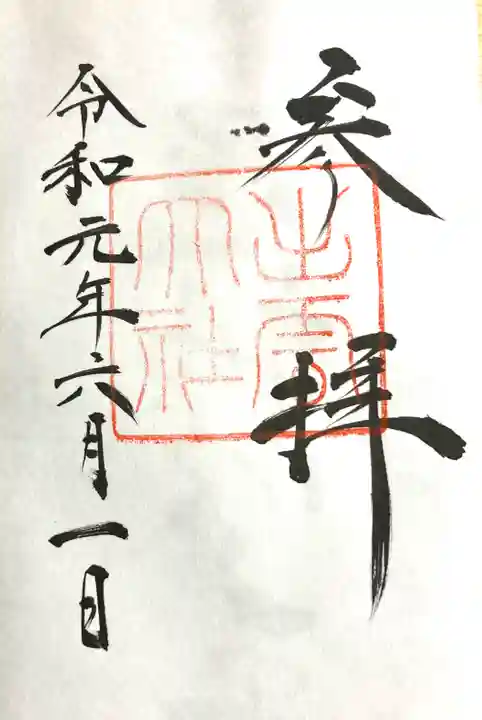 参拝
出雲
大社
令和元年六月一日